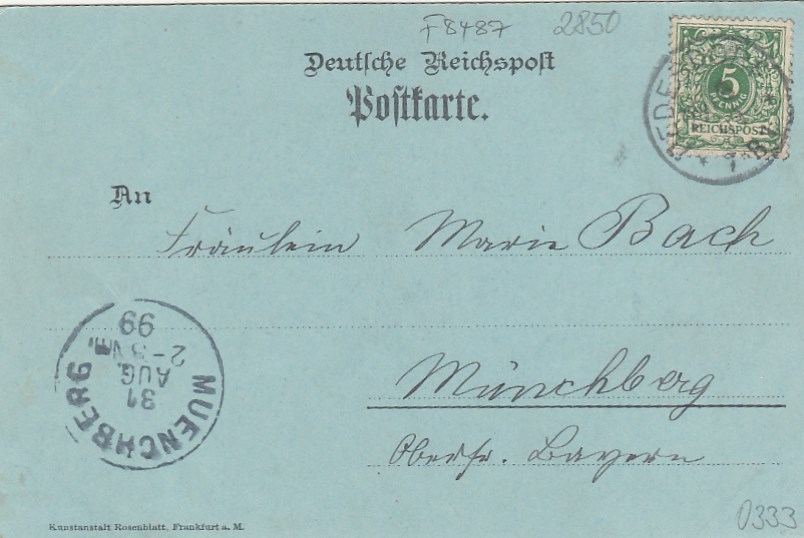 F8487 2850
Deutsche Reichspost
Postkarte.
5
PFENNIG
REICHSPOST
An
Fräulein Marie Bach
Münchberg
Oberfr. Bayern
MUENCHBERG
31
AUG.
2-3 Nm.
99
Kunstanstalt Rosenblatt, Frankfurt a. M.
0333